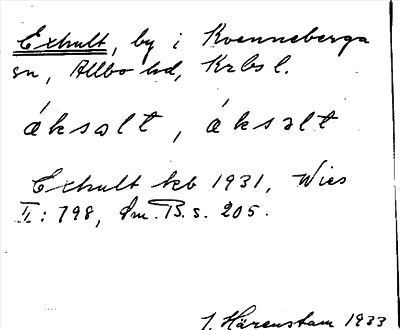 Exhult, by i Kvenneberga
sn, Allbo hd, Krbs l.
áksalt, áksalt
Exhult kb 1931, Wies
II: 798, Sm. B. s. 205.
J. Härenstam 1933